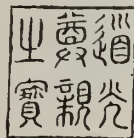 道光
尊親
之寶